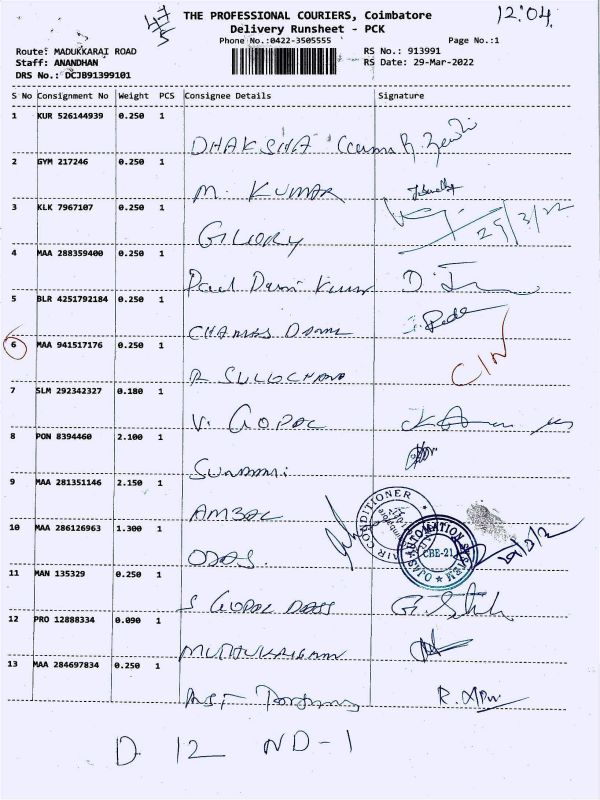 THE PROFESSIONAL COURIERS, Coimbatore
12:04
Delivery Runsheet - PCK
Phone No.:0422-3505555
Page No.:1
Route: MADUKKARAI ROAD
RS No.: 913991
Staff: ANANDHAN
RS Date: 29-Mar-2022
DRS No.: DCJB91399101
S No Consignment No Weight PCS Consignee Details Signature
1 KUR 526144939 0.250 1
DHAKSHA
2 GYM 217246 0.250 1
M. KUMAR
3 KLK 7967107 0.250 1
GLORY 29/3/22
4 MAA 288359400 0.250 1
Paul
5 BLR 4251792184 0.250 1
6 MAA 941517176 0.250 1
R SULLOCHANA
7 SLM 292342327 0.180 1
V. GOPAL
8 PON 8394460 2.100 1
9 MAA 281351146 2.150 1
AMBAL
AIR CONDITIONER
10 MAA 286126963 1.300 1
ODAS
OJAS AUTOMATION
CBE-21
11 MAN 135329 0.250 1
S GOPAL DASS
12 PRO 12888334 0.090 1
13 MAA 284697834 0.250 1
D 12 ND-1